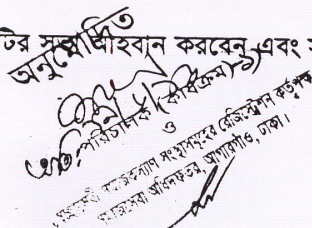 টির সভা আহবান করবেন এবং স
অনুমোদিত
অতিঃ পরিচালক (কার্যক্রম)
ও
স্বেচ্ছাসেবী সমাজকল্যাণ সংস্থাসমূহের রেজিস্ট্রেশন কর্তৃপক্ষ
সমাজসেবা অধিদফতর, আগারগাঁও, ঢাকা।